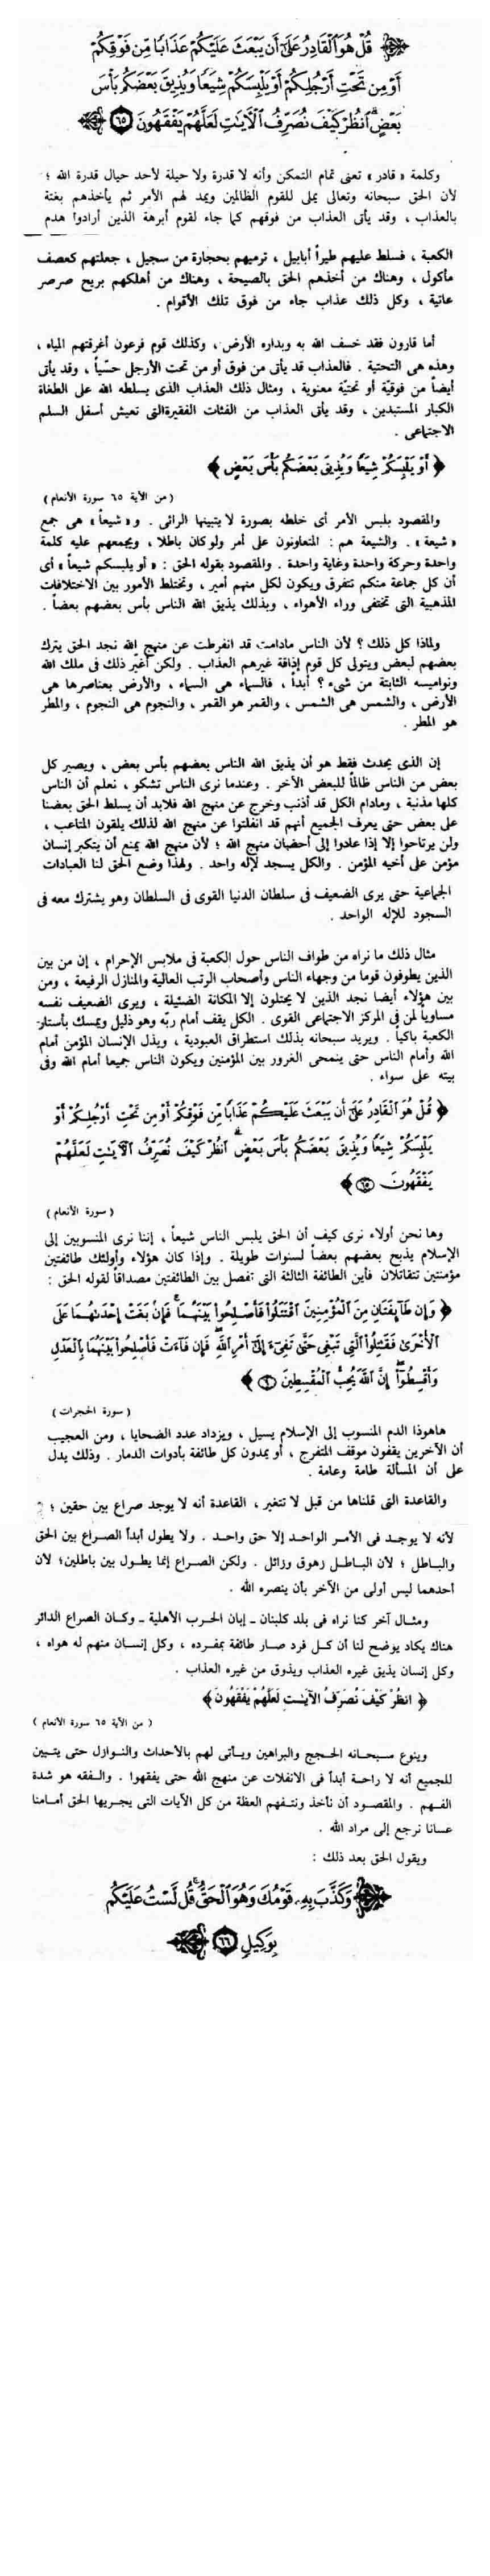 قُلْ هُوَ ٱلْقَادِرُ عَلَىٰٓ أَن يَبْعَثَ عَلَيْكُمْ عَذَابًا مِّن فَوْقِكُمْ
أَوْ مِن تَحْتِ أَرْجُلِكُمْ أَوْ يَلْبِسَكُمْ شِيَعًا وَيُذِيقَ بَعْضَكُم بَأْسَ
بَعْضٍ ۗ ٱنظُرْ كَيْفَ نُصَرِّفُ ٱلْآيَاتِ لَعَلَّهُمْ يَفْقَهُونَ ٦٥
وكلمة « قادر » تعنى تمام التمكن وأنه لا قدرة ولا حيلة لأحد حيال قدرة الله ؛
لأن الحق سبحانه وتعالى يملى للقوم الظالمين ويمد لهم الأمر ثم يأخذهم بغتة
بالعذاب ، وقد يأتى العذاب من فوقهم كما جاء لقوم أبرهة الذين أرادوا هدم
الكعبة ، فسلط عليهم طيراً أبابيل ، ترميهم بحجارة من سجيل ، جعلتهم كعصف
مأكول ، وهناك من أخذهم الحق بالصيحة ، وهناك من أهلكهم بريح صرصر
عاتية ، وكل ذلك عذاب جاء من فوق تلك الأقوام .
أما قارون فقد خسف الله به وبداره الأرض ، وكذلك قوم فرعون أغرقتهم المياه ،
وهذه هى التحتية . فالعذاب قد يأتى من فوق أو من تحت الأرجل حسّياً ، وقد يأتى
أيضاً من فوقيّة أو تحتيّة معنوية ، ومثال ذلك العذاب الذى يسلطه الله على الطغاة
الكبار المستبدين ، وقد يأتى العذاب من الفئات الفقيرة التى تعيش أسفل السلم
الاجتماعى .
﴿ أَوْ يَلْبِسَكُمْ شِيَعًا وَيُذِيقَ بَعْضَكُم بَأْسَ بَعْضٍ ﴾
( من الآية ٦٥ سورة الأنعام )
والمقصود بلبس الأمر أى خلطه بصورة لا يتبينها الرائى . و « شيعاً » هى جمع
« شيعة » . والشيعة هم : المتعاونون على أمر ولو كان باطلا ، ويجمعهم عليه كلمة
واحدة وحركة واحدة وغاية واحدة . والمقصود بقوله الحق : « أو يلبسكم شيعاً » أى
أن كل جماعة منكم تتفرق ويكون لكل منهم أمير ، وتختلط الأمور بين الاختلافات
المذهبية التى تختفى وراء الأهواء ، وبذلك يذيق الله الناس بأس بعضهم بعضاً .
ولماذا كل ذلك ؟ لأن الناس مادامت قد انفرطت عن منهج الله نجد الحق يترك
بعضهم لبعض ويتولى كل قوم إذاقة غيرهم العذاب . ولكن أغيّر ذلك فى ملك الله
ونواميسه الثابتة من شىء ؟ أبداً ، فالسماء هى السماء ، والأرض بعناصرها هى
الأرض ، والشمس هى الشمس ، والقمر هو القمر ، والنجوم هى النجوم ، والمطر
هو المطر .
إن الذى يحدث فقط هو أن يذيق الله الناس بعضهم بأس بعض ، ويصير كل
بعض من الناس ظالماً للبعض الآخر . وعندما نرى الناس تشكو ، نعلم أن الناس
كلها مذنبة ، ومادام الكل قد أذنب وخرج عن منهج الله فلابد أن يسلط الحق بعضنا
على بعض حتى يعرف الجميع أنهم قد انفلتوا عن منهج الله لذلك يلقون المتاعب ،
ولن يرتاحوا إلا إذا عادوا إلى أحضان منهج الله ؛ لأن منهج الله يمنع أن يتكبر إنسان
مؤمن على أخيه المؤمن . والكل يسجد لإله واحد . ولهذا وضع الحق لنا العبادات
الجماعية حتى يرى الضعيف فى سلطان الدنيا القوى فى السلطان وهو يشترك معه فى
السجود للإله الواحد .
مثال ذلك ما نراه من طواف الناس حول الكعبة فى ملابس الإحرام ، إن من بين
الذين يطوفون قوما من وجهاء الناس وأصحاب الرتب العالية والمنازل الرفيعة ، ومن
بين هؤلاء أيضا نجد الذين لا يحتلون إلا المكانة الضئيلة ، ويرى الضعيف نفسه
مساوياً لمن فى المركز الاجتماعى القوى . الكل يقف أمام ربّه وهو ذليل ويمسك بأستار
الكعبة باكياً . ويريد سبحانه بذلك استطراق العبودية ، ويذل الإنسان المؤمن أمام
الله وأمام الناس حتى ينمحى الغرور بين المؤمنين ويكون الناس جميعا أمام الله وفى
بيته على سواء .
﴿ قُلْ هُوَ ٱلْقَادِرُ عَلَىٰٓ أَن يَبْعَثَ عَلَيْكُمْ عَذَابًا مِّن فَوْقِكُمْ أَوْ مِن تَحْتِ أَرْجُلِكُمْ أَوْ
يَلْبِسَكُمْ شِيَعًا وَيُذِيقَ بَعْضَكُم بَأْسَ بَعْضٍ ۗ ٱنظُرْ كَيْفَ نُصَرِّفُ ٱلْآيَاتِ لَعَلَّهُمْ
يَفْقَهُونَ ٦٥ ﴾
( سورة الأنعام )
وها نحن أولاء نرى كيف أن الحق يلبس الناس شيعاً ، إننا نرى المنسوبين إلى
الإسلام يذبح بعضهم بعضاً لسنوات طويلة . وإذا كان هؤلاء وأولئك طائفتين
مؤمنتين تتقاتلان فأين الطائفة الثالثة التى تفصل بين الطائفتين مصداقاً لقوله الحق :
﴿ وَإِن طَآئِفَتَانِ مِنَ ٱلْمُؤْمِنِينَ ٱقْتَتَلُوا۟ فَأَصْلِحُوا۟ بَيْنَهُمَا ۖ فَإِنۢ بَغَتْ إِحْدَىٰهُمَا عَلَى
ٱلْأُخْرَىٰ فَقَٰتِلُوا۟ ٱلَّتِى تَبْغِى حَتَّىٰ تَفِىٓءَ إِلَىٰٓ أَمْرِ ٱللَّهِ ۚ فَإِن فَآءَتْ فَأَصْلِحُوا۟ بَيْنَهُمَا بِٱلْعَدْلِ
وَأَقْسِطُوٓا۟ ۖ إِنَّ ٱللَّهَ يُحِبُّ ٱلْمُقْسِطِينَ ٩ ﴾
( سورة الحجرات )
هاهوذا الدم المنسوب إلى الإسلام يسيل ، ويزداد عدد الضحايا ، ومن العجيب
أن الآخرين يقفون موقف المتفرج ، أو يمدون كل طائفة بأدوات الدمار . وذلك يدل
على أن المسألة طامة وعامة .
والقاعدة التى قلناها من قبل لا تتغير ، القاعدة أنه لا يوجد صراع بين حقين ؛
لأنه لا يوجد فى الأمر الواحد إلا حق واحد . ولا يطول أبداً الصراع بين الحق
والباطل ؛ لأن الباطل زهوق وزائل . ولكن الصراع إنما يطول بين باطلين ؛ لأن
أحدهما ليس أولى من الآخر بأن ينصره الله .
ومثال آخر كنا نراه فى بلد كلبنان ـ إبان الحرب الأهلية ـ وكان الصراع الدائر
هناك يكاد يوضح لنا أن كل فرد صار طائفة بمفرده ، وكل إنسان منهم له هواه ،
وكل إنسان يذيق غيره العذاب ويذوق من غيره العذاب .
﴿ انظُرْ كَيْفَ نُصَرِّفُ الْآيَاتِ لَعَلَّهُمْ يَفْقَهُونَ ﴾
( من الآية ٦٥ سورة الأنعام )
وينوع سبحانه الحجج والبراهين ويأتى لهم بالأحداث والنوازل حتى يتبين
للجميع أنه لا راحة أبداً فى الانفلات عن منهج الله حتى يفقهوا . والفقه هو شدة
الفهم . والمقصود أن نأخذ ونتفهم العظة من كل الآيات التى يجريها الحق أمامنا
عسانا نرجع إلى مراد الله .
ويقول الحق بعد ذلك :
وَكَذَّبَ بِهِۦ قَوْمُكَ وَهُوَ ٱلْحَقُّ ۚ قُل لَّسْتُ عَلَيْكُم
بِوَكِيلٍ ٦٦